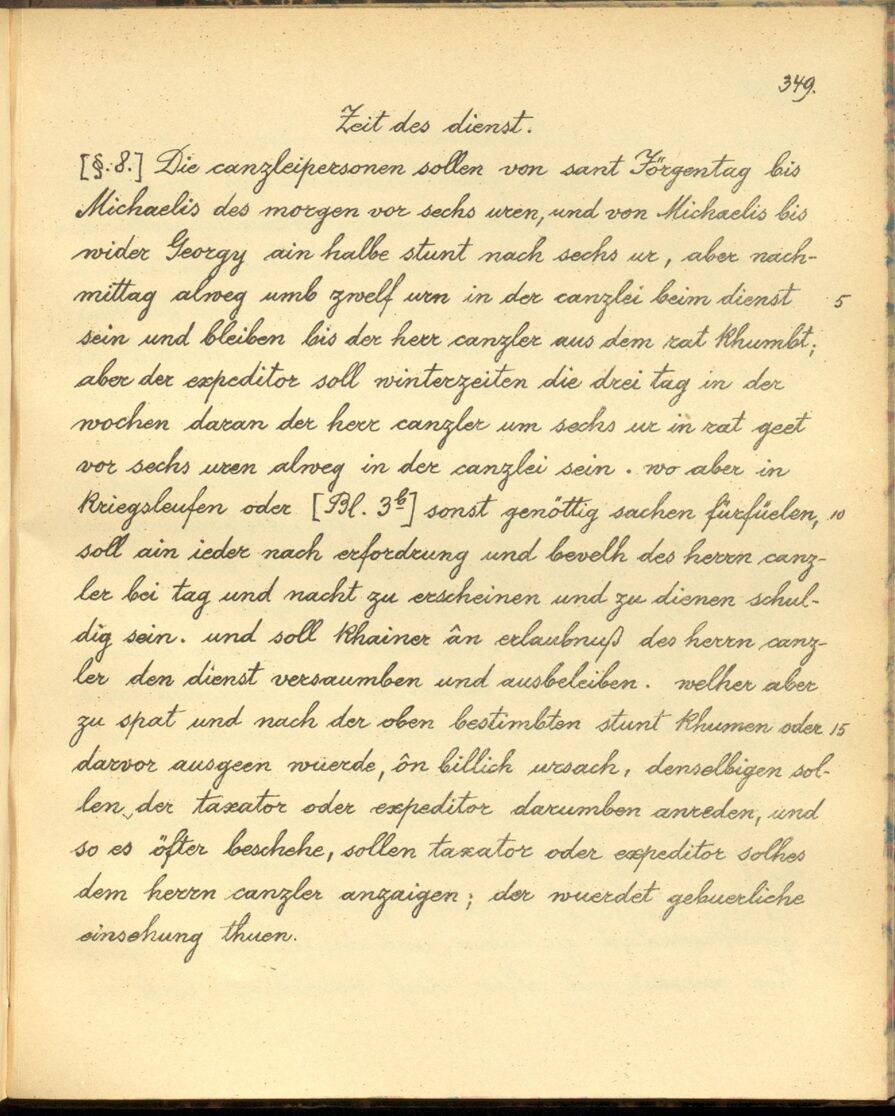 349.
Zeit des dienst.
[§. 8.] Die canzleipersonen sollen von sant Jörgentag bis
Michaelis des morgen vor sechs uren, und von Michaelis bis
wider Georgy ain halbe stunt nach sechs ur, aber nach-
mittag alweg umb zwelf urn in der canzlei beim dienst 5
sein und bleiben bis der herr canzler aus dem rat khumbt;
aber der expeditor soll winterzeiten die drei tag in der
wochen daran der herr canzler um sechs ur in rat geet
vor sechs uren alweg in der canzlei sein. wo aber in
kriegsleufen oder [Bl. 3b] sonst genöttig sachen fürfüelen, 10
soll ain ieder nach erfordrung und bevelh des herrn canz-
ler bei tag und nacht zu erscheinen und zu dienen schul-
dig sein. und soll khainer ân erlaubnuß des herrn canz-
ler den dienst versaumben und ausbeleiben. welher aber
zu spat und nach der oben bestimbten stunt khumen oder 15
darvor ausgeen wuerde, ôn billich ursach, denselbigen sol-
len der taxator oder expeditor darumben anreden, und
so es öfter beschehe, sollen taxator oder expeditor solhes
dem herrn canzler anzaigen; der wuerdet gebuerliche
einsehung thuen.